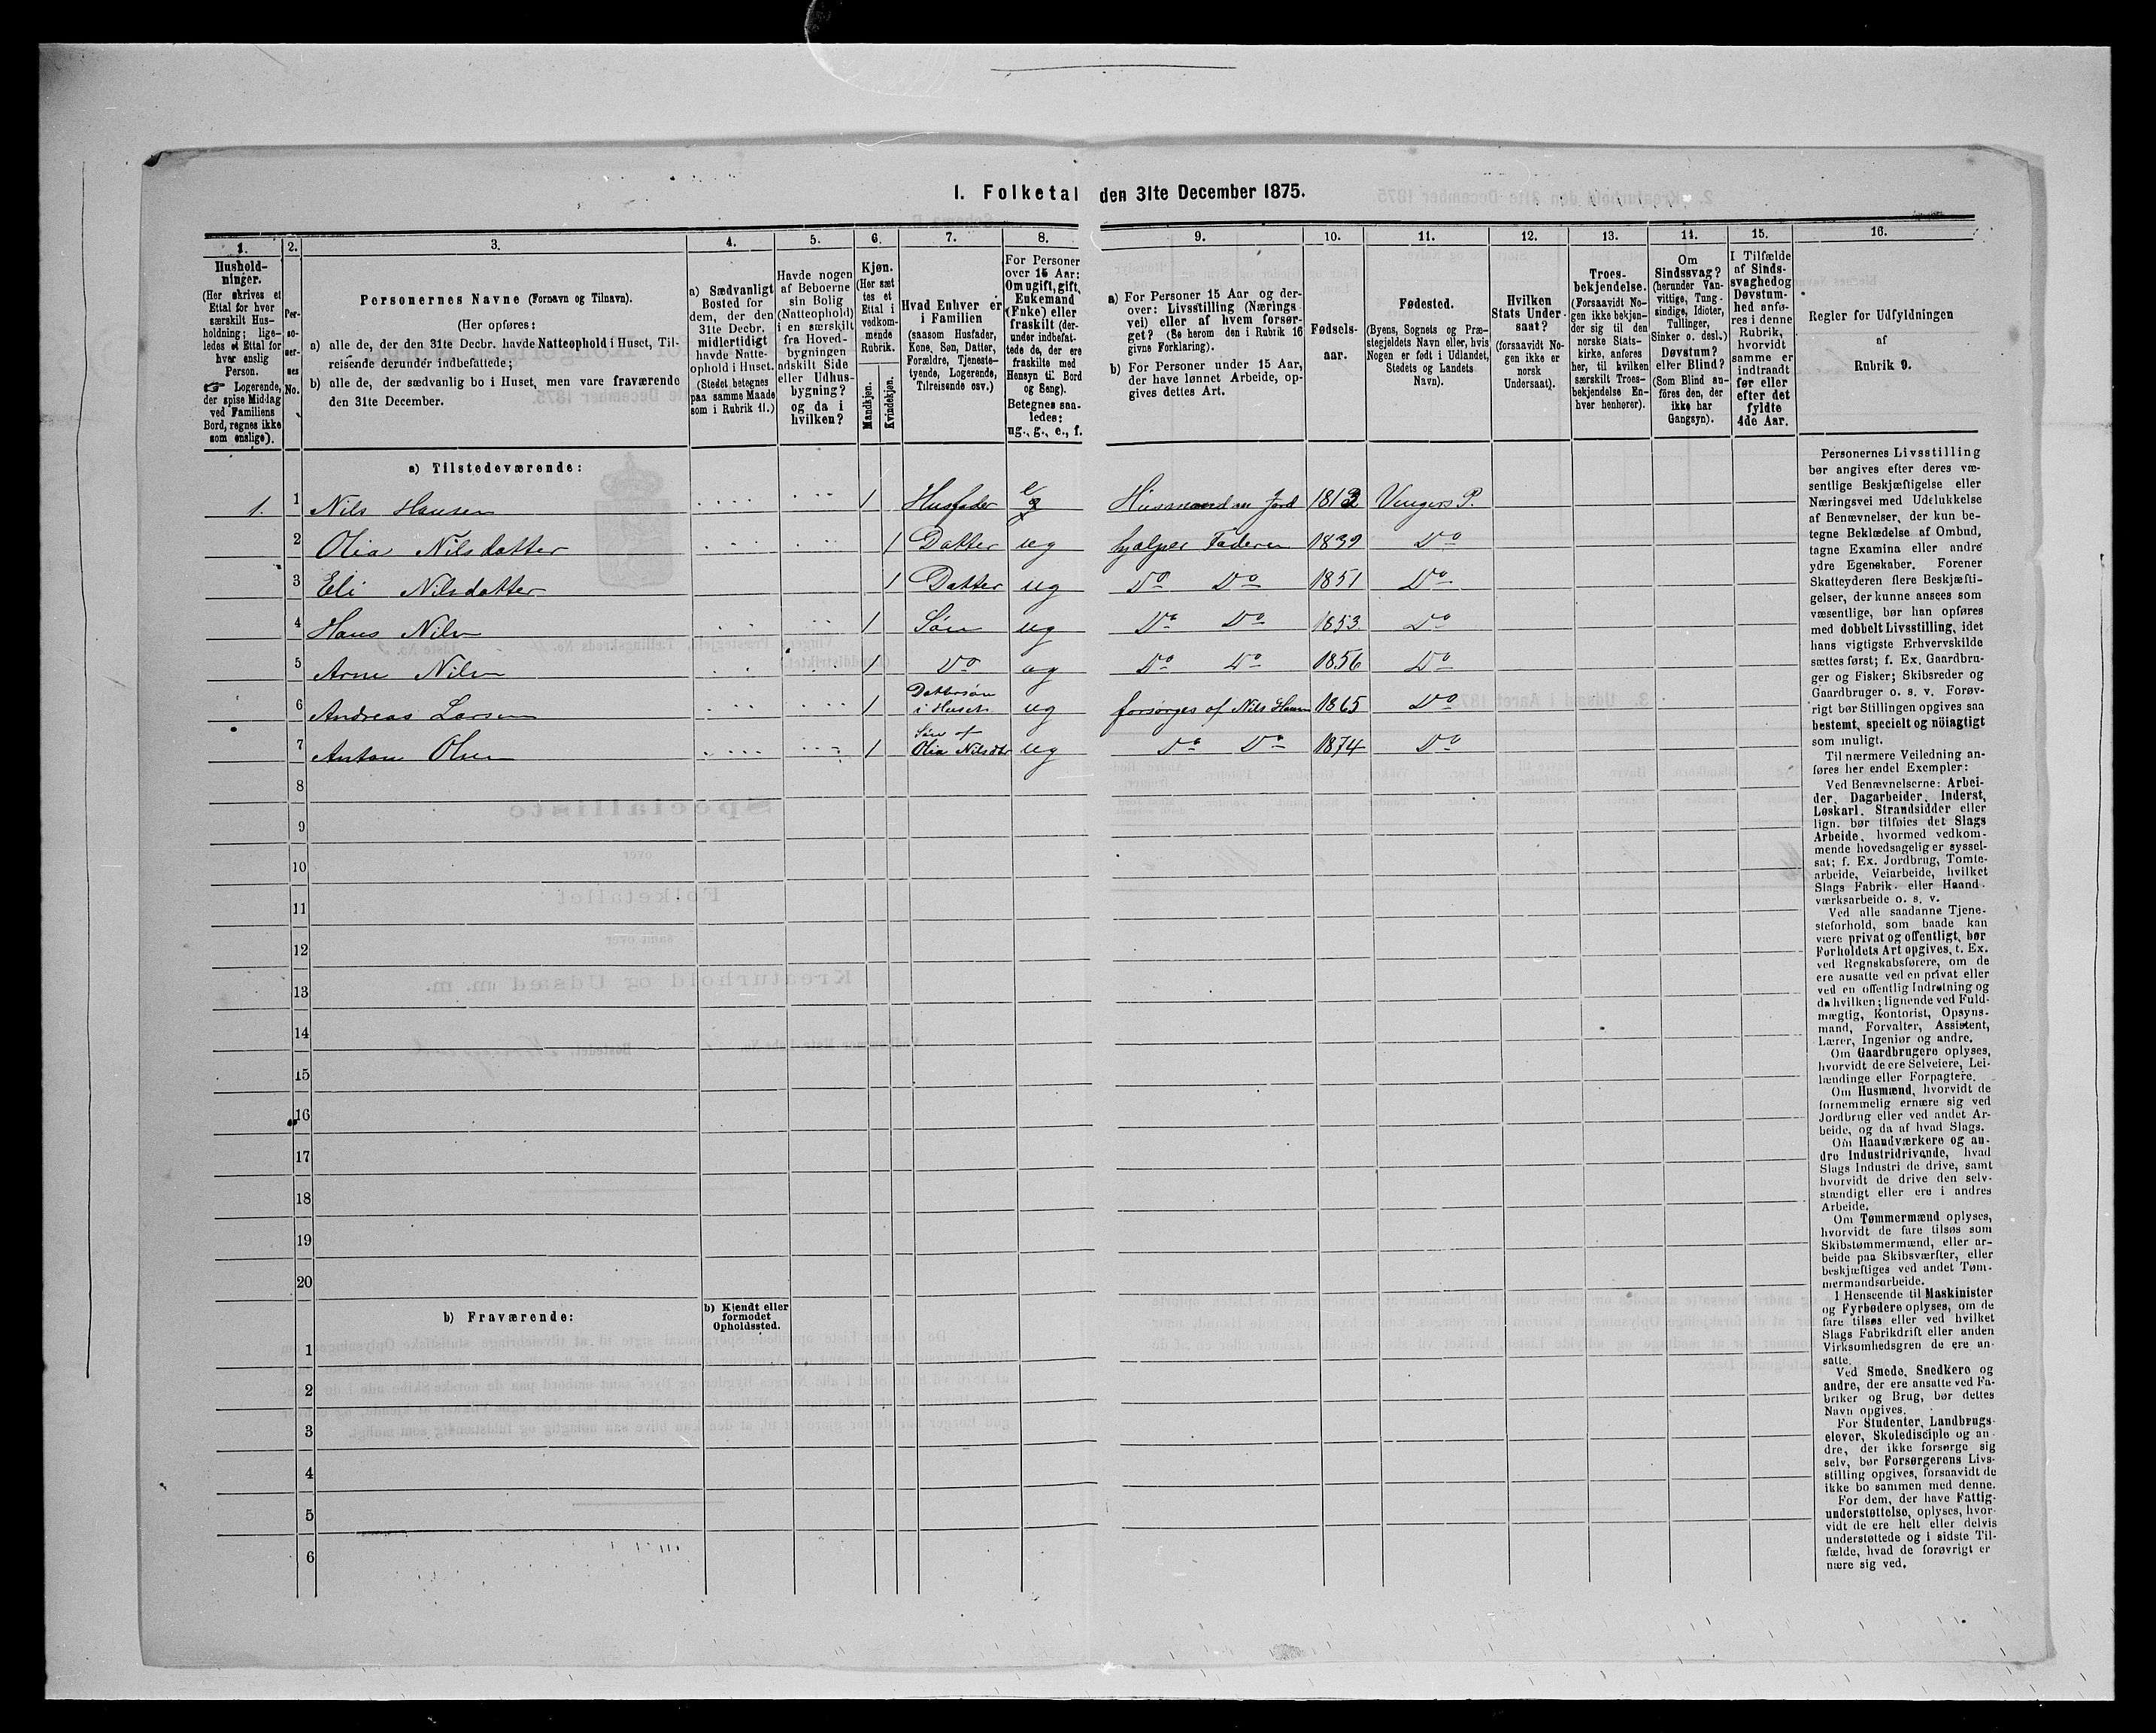 I. Folketal den 31te December 1875.
1. 2. 3. 4. 5. 6. 7. 8. 9. 10. 11. 12. 13. 14. 15. 16.
Hushold-
ninger.
(Her skrives et
Ettal for hver
særskilt Hus-
holdning; lige-
ledes et Ettal for
hver enslig
Person.
☞ Logerende,
der spise Middag
ved Familiens
Bord, regnes ikke
som enslige).
Per-
so-
ner-
nes
No.
Personernes Navne (Fornavn og Tilnavn).
(Her opføres:
a) alle de, der den 31te Decbr. havde Natteophold i Huset, Til-
reisende derunder indbefattede;
b) alle de, der sædvanlig bo i Huset, men vare fraværende
den 31te December.
a) Sædvanligt
Bosted for
dem, der den
31te Decbr.
midlertidigt
havde Natte-
ophold i Huset.
(Stedet betegnes
paa samme Maade
som i Rubrik 11.)
Havde nogen
af Beboerne
sin Bolig
(Natteophold)
i en særskilt
fra Hoved-
bygningen
adskilt Side
eller Udhus-
bygning?
og da i
hvilken?
Kjøn.
(Her sæt
tes et
Ettal i
vedkom-
mende
Rubrik.
Mandkjøn.
Kvindekjøn.
Hvad Enhver er
i Familien
(saasom Husfader,
Kone, Søn, Datter,
Forældre, Tjeneste-
tyende, Logerende,
Tilreisende osv.)
For Personer
over 15 Aar:
Om ugift, gift,
Enkemand
(Enke) eller
fraskilt (der-
under indbefat-
tede de, der ere
fraskilte med
Hensyn til Bord
og Seng).
Betegnes saa-
ledes:
ug., g., e., f.
a) For Personer 15 Aar og der-
over: Livsstilling (Nærings-
vei) eller af hvem forsør-
get? (Se herom den i Rubrik 16
givne Forklaring).
b) For Personer under 15 Aar,
der have lønnet Arbeide, op-
gives dettes Art.
Fødsels-
aar.
Fødested.
(Byens, Sognets og Præ-
stegjeldets Navn eller, hvis
Nogen er født i Udlandet,
Stedets og Landets
Navn).
Hvilken
Stats Under-
saat?
(forsaavidt No-
gen ikke er
norsk
Undersaat).
Troes-
bekjendelse.
(Forsaavidt No-
gen ikke bekjen-
der sig til den
norske Stats-
kirke, anføres
her, til hvilken
særskilt Troes-
bekjendelse En-
hver henhører).
Om
Sindssvag?
(herunder Van-
vittige, Tung-
sindige, Idioter,
Tullinger,
Sinker o. desl.)
Døvstum?
eller Blind?
(Som Blind an-
føres den, der
ikke har
Gangsyn).
I Tilfælde
af Sinds-
svaghed og
Døvstum-
hed anfø-
res i denne
Rubrik,
hvorvidt
samme er
indtraadt
før eller
efter det
fyldte
4de Aar.
Regler for Udfyldningen
af
Rubrik 9.
a) Tilstedeværende:
1. 1 Nils Hansen 1 Husfader e Husmand m Jord 1813 Vingers P.
2 Olia Nilsdatter 1 Datter ug hjælper Faderen 1839 Do
3 Eli Nilsdatter 1 Datter ug Do Do 1851 Do
4 Hans Nilsn 1 Søn ug Do Do 1853 Do
5 Arne Nilsn 1 Do ug Do Do 1856 Do
6 Andreas Larsen 1 Dattersøn i Huset ug forsørges af Nils Hansen 1865 Do
7 Anton Olsen 1 Søn af Olia Nilsdtr ug Do Do 1874 Do
8
9
10
11
12
13
14
15
16
17
18
19
20
b) Fraværende:
b) Kjendt eller
formodet
Opholdssted.
1
2
3
4
5
6
Personernes Livsstilling
bør angives efter deres væ-
sentlige Beskjæftigelse eller
Næringsvei med Udelukkelse
af Benævnelser, der kun be-
tegne Beklædelse af Ombud,
tagne Examina eller andre
ydre Egenskaber. Forener
Skatteyderen flere Beskjæfti-
gelser, der kunne ansees som
væsentlige, bør han opføres
med dobbelt Livsstilling, idet
hans vigtigste Erhvervskilde
sættes først; f. Ex. Gaardbru-
ger og Fisker; Skibsreder og
Gaardbruger o. s. v. Forøv-
rigt bør Stillingen opgives saa
bestemt, specielt og nöiagtigt
som muligt.
Til nærmere Veiledning an-
føres her endel Exempler:
Ved Benævnelserne: Arbei-
der, Dagarbeider, Inderst,
Løskarl, Strandsidder eller
lign. bør tilføies det Slags
Arbeide, hvormed vedkom-
mende hovedsagelig er syssel-
sat; f. Ex. Jordbrug, Tomte-
arbeide, Veiarbeide, hvilket
Slags Fabrik- eller Haand-
værksarbeide o. s. v.
Ved alle saadanne Tjene-
steforhold, som baade kan
være privat og offentligt, bør
Forholdets Art opgives, t. Ex.
ved Regnskabsførere, om de
ere ansatte ved en privat eller
ved en offentlig Indretning og
da hvilken; lignende ved Fuld-
mægtig, Kontorist, Opsyns-
mand, Forvalter, Assistent,
Lærer, Ingeniør og andre.
Om Gaardbrugere oplyses,
hvorvidt de ere Selveiere, Lei-
lændinge eller Forpagtere.
Om Husmænd, hvorvidt de
fornemmelig ernære sig ved
Jordbrug eller ved andet Ar-
beide, og da af hvad Slags.
Om Haandværkere og an-
dre Industridrivande, hvad
Slags Industri de drive, samt
hvorvidt de drive den selv-
stændigt eller ere i andres
Arbeide.
Om Tømmermænd oplyses,
hvorvidt de fare tilsøs som
Skibstømmermænd, eller ar-
beide paa Skibsværfter, eller
beskjæftiges ved andet Tøm-
mermandsarbeide.
I Henseende til Maskinister
og Fyrbødere oplyses, om de
fare tilsøs eller ved hvilket
Slags Fabrikdrift eller anden
Virksomhedsgren de ere an-
satte.
Ved Smede, Snedkere og
andre, der ere ansatte ved Fa-
briker og Brug, bør dettes
Navn opgives.
For Studenter, Landbrugs-
elever, Skoledisciple og an-
dre, der ikke forsørge sig
selv, bør Forsørgerens Livs-
stilling opgives, forsaavidt de
ikke bo sammen med denne.
For dem, der have Fattig-
understøttelse, oplyses, hvor-
vidt de ere helt eller delvis
understøttede og i sidste Til-
fælde, hvad de forøvrigt er
nære sig ved.